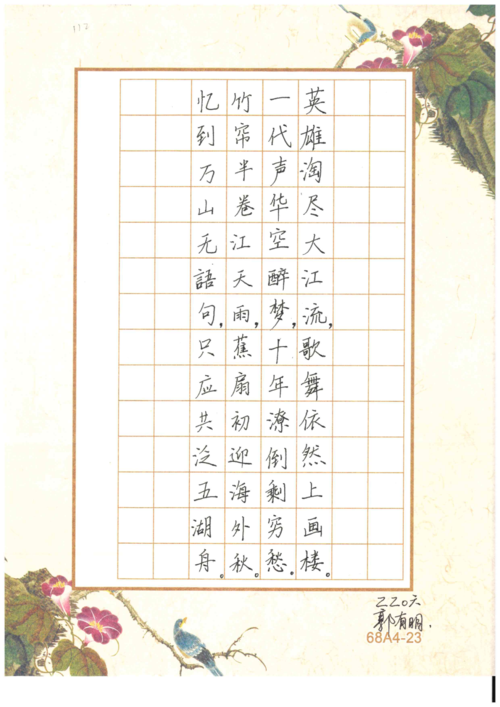 112
英雄淘尽大江流，歌舞依然上画楼。
一代声华空醉梦，十年潦倒剩穷愁。
竹帘半卷江天雨，蕉扇初迎海外秋。
忆到万山无語句，只应共泛五湖舟。
乙乙〇六
郭有明.
68A4-23